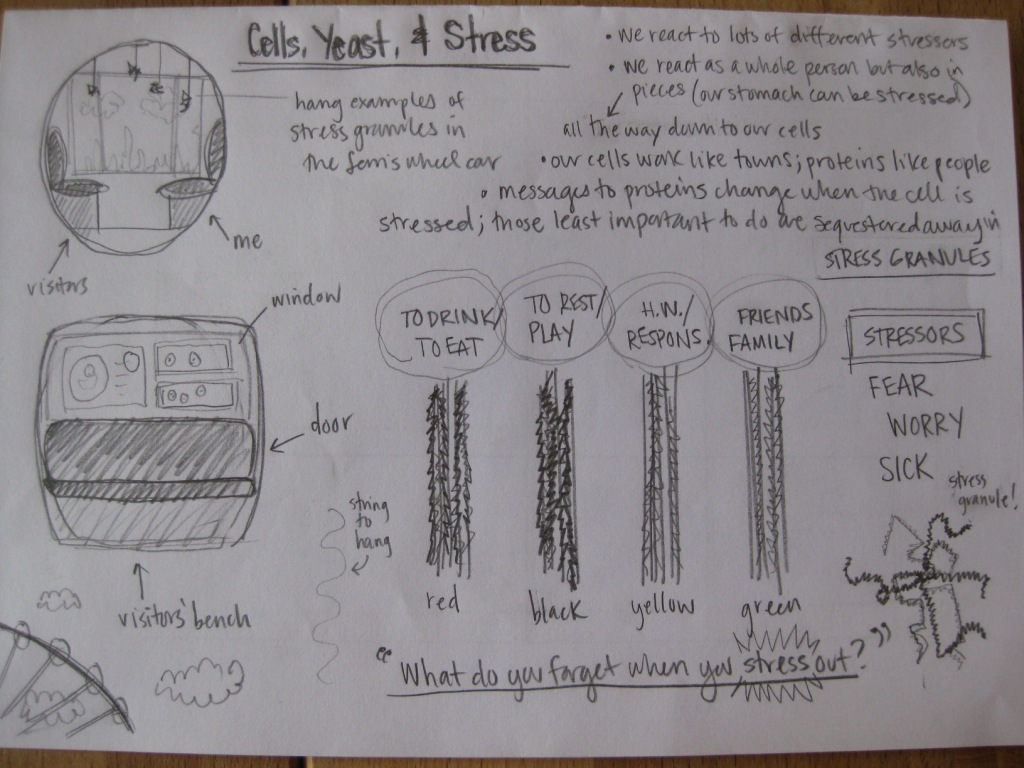 Cells, Yeast, & Stress
• we react to lots of different stressors
• we react as a whole person but also in
pieces (our stomach can be stressed)
all the way down to our cells
• our cells work like towns; proteins like people
• messages to proteins change when the cell is
stressed; those least important to do are sequestered away in
STRESS GRANULES
hang examples of
stress granules in
the ferris wheel car
me
visitors
window
door
visitors' bench
string
to
hang
TO DRINK/
TO EAT
TO REST/
PLAY
H.W./
RESPONS.
FRIENDS
FAMILY
red
black
yellow
green
STRESSORS
FEAR
WORRY
SICK
stress
granule!
"What do you forget when you stress out?"